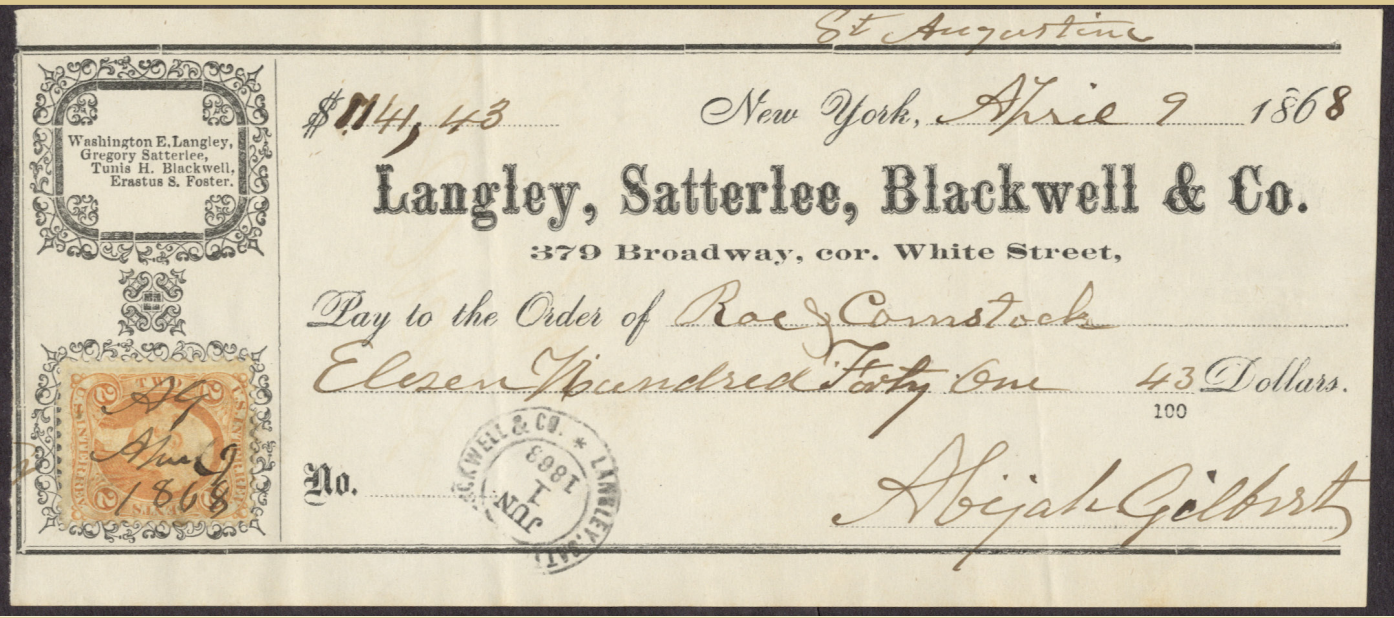 St Augustine
Washington E. Langley,
Gregory Satterlee,
Tunis H. Blackwell,
Erastus S. Foster.
$1141,43
New York, April 9 1868
Langley, Satterlee, Blackwell & Co.
379 Broadway, cor. White Street,
Pay to the Order of Roe & Comstock
Eleven Hundred Forty One 43 Dollars.
100
2 TWO 2
U.S. INTER. REV.
U.S. INTER. REV.
2 CENTS 2
AG
April 9
1868
No.
LANGLEY, SATT BLACKWELL & CO. *
JUN
1
1868
Abijah Gilbert